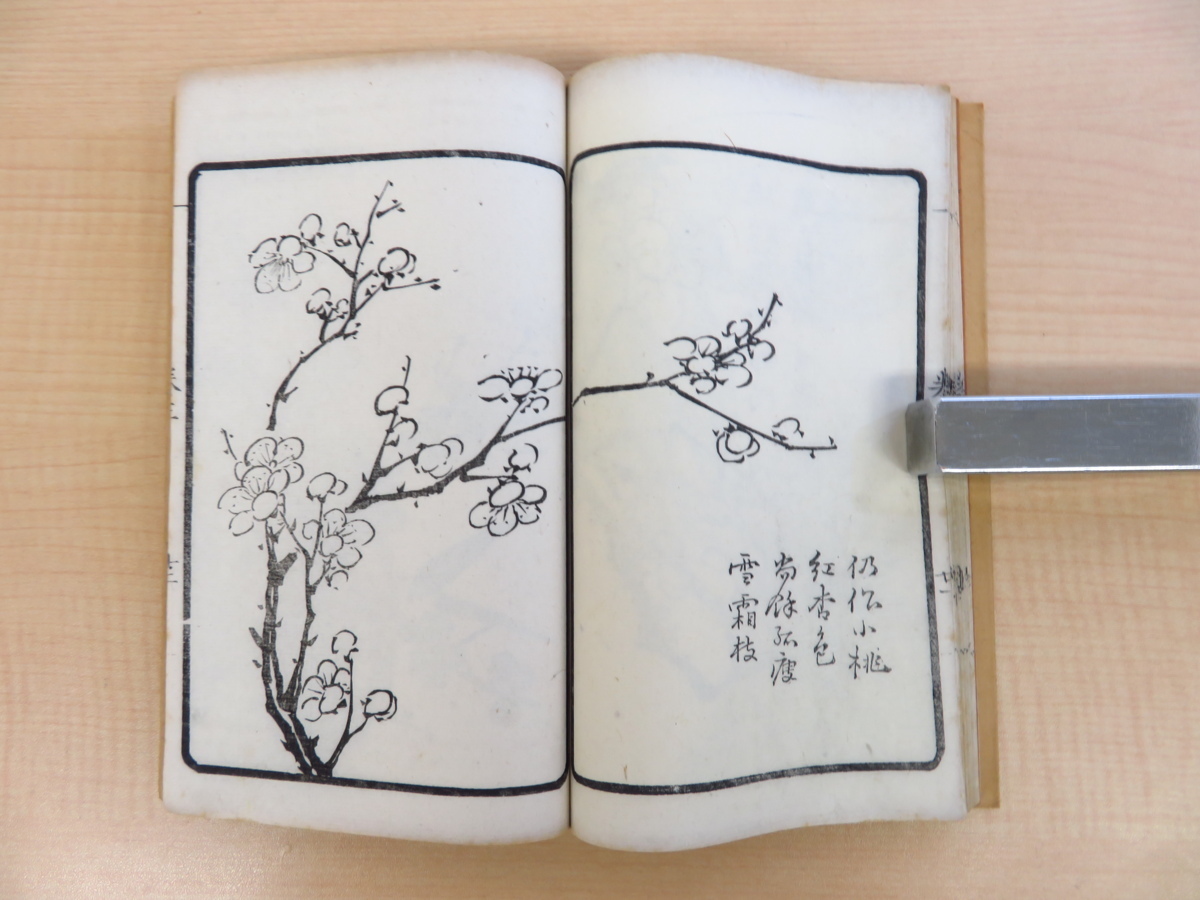 仍作小桃
紅杏色
尚餘孤瘦
雪霜枝